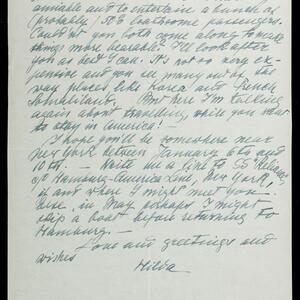 amiable and to entertain a bunch of
probably / 508 boatsome passengers.
Could not you both come along to make
things more bearable? I'll look after
you as best I can. It's not so very ex-
pensive and you in many out of the
way places like Korea and French
Somaliland. But here I'm talking
again about traveling, while you want
to stay in America!
I hope you'll be somewhere near
New York between January 6th and
10th. Write me a line to SS
c/o Hamburg-America Line, New York,
if and where I might meet you.
Else, in May perhaps I might
skip a boat before returning to
Hamburg.
Love and greetings and
wishes
Hilda